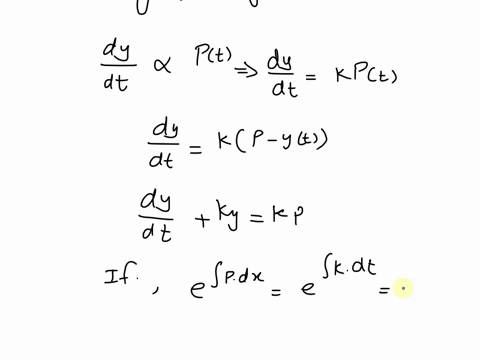 dy/dt ∝ P(t) ⇒ dy/dt = kP(t)
dy/dt = k(P-y(t))
dy/dt + ky = kp
If., e^∫P.dx = e^∫k.dt =